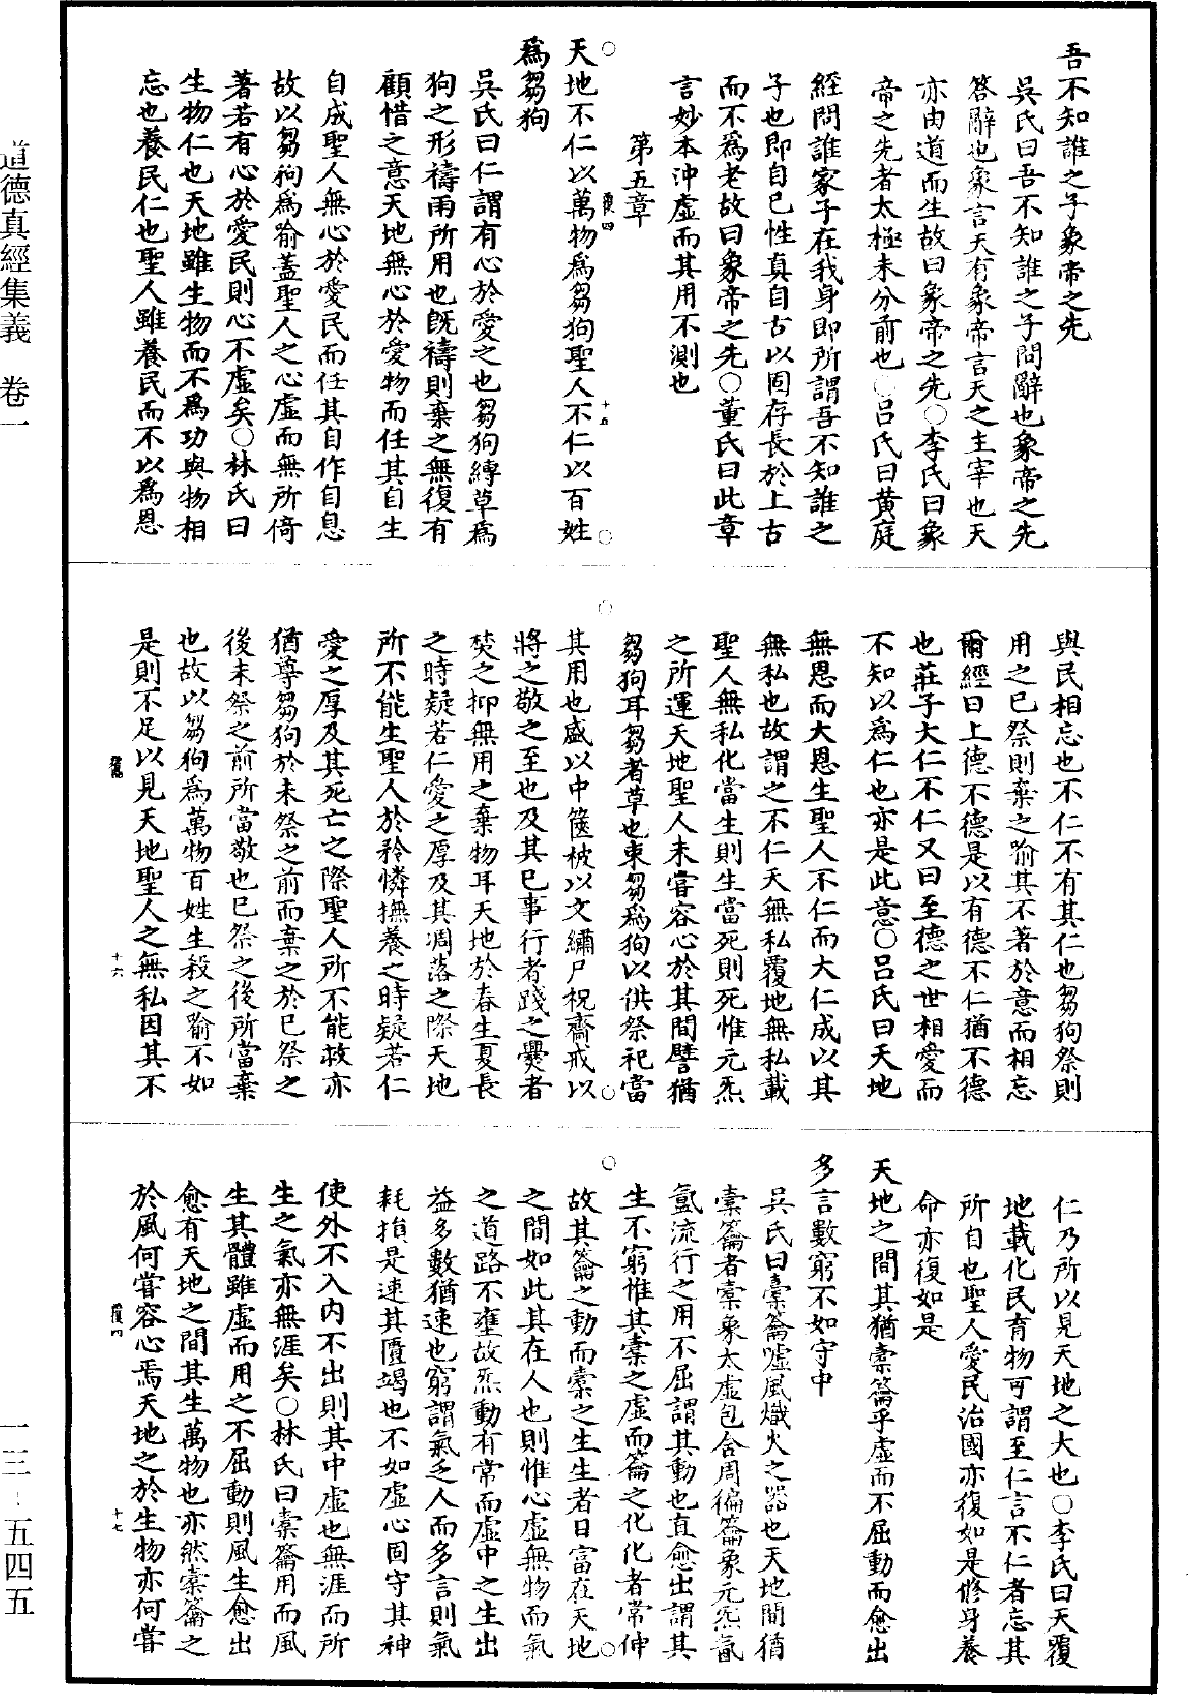 吾不知誰之子象帝之先
吳氏曰吾不知誰之子問辭也象帝之先
答辭也象言天有象帝言天之主宰也天
亦由道而生故曰象帝之先○李氏曰象
帝之先者太極未分前也○呂氏曰黃庭
經問誰家子在我身即所謂吾不知誰之
子也即自已性真自古以固存長於上古
而不爲老故曰象帝之先○董氏曰此章
言妙本沖虛而其用不測也
第五章
天地不仁以萬物爲芻狗聖人不仁以百姓
爲芻狗
吳氏曰仁謂有心於愛之也芻狗縛草爲
狗之形禱雨所用也既禱則棄之無復有
顧惜之意天地無心於愛物而任其自生
自成聖人無心於愛民而任其自作自息
故以芻狗爲喻蓋聖人之心虛而無所倚
著若有心於愛民則心不虛矣○林氏曰
生物仁也天地雖生物而不爲功與物相
忘也養民仁也聖人雖養民而不以爲恩
與民相忘也不仁不有其仁也芻狗祭則
用之已祭則棄之喻其不著於意而相忘
爾經曰上德不德是以有德不仁猶不德
也莊子大仁不仁又曰至德之世相愛而
不知以爲仁也亦是此意○呂氏曰天地
無恩而大恩生聖人不仁而大仁成以其
無私也故謂之不仁天無私覆地無私載
聖人無私化當生則生當死則死惟元炁
之所運天地聖人未嘗容心於其間譬猶
芻狗耳芻者草也束芻爲狗以供祭祀當
其用也盛以中篋被以文繡尸祝齋戒以
將之敬之至也及其已事行者踐之爨者
焚之抑無用之棄物耳天地於春生夏長
之時疑若仁愛之厚及其凋落之際天地
所不能生聖人於矜憐撫養之時疑若仁
愛之厚及其死亡之際聖人所不能救亦
猶尊芻狗於未祭之前而棄之於已祭之
後未祭之前所當敬也已祭之後所當棄
也故以芻狗爲萬物百姓生殺之喻不如
是則不足以見天地聖人之無私因其不
仁乃所以見天地之大也○李氏曰天覆
地載化民育物可謂至仁言不仁者忘其
所自也聖人愛民治國亦復如是脩身養
命亦復如是
天地之間其猶橐籥乎虛而不屈動而愈出
多言數窮不如守中
吳氏曰橐籥噓風熾火之器也天地間猶
橐籥者橐象太虛包含周徧籥象元炁氤
氳流行之用不屈謂其動也直愈出謂其
生不窮惟其橐之虛而籥之化化者常伸
故其籥之動而橐之生生者日富在天地
之間如此其在人也則惟心虛無物而氣
之道路不壅故炁動有常而虛中之生出
益多數猶速也窮謂氣乏人而多言則氣
耗損是速其匱竭也不如虛心固守其神
使外不入內不出則其中虛也無涯而所
生之氣亦無涯矣○林氏曰橐籥用而風
生其體雖虛而用之不屈動則風生愈出
愈有天地之間其生萬物也亦然橐籥之
於風何嘗容心焉天地之於生物亦何嘗
十五
十六
十七
道德真經集義 卷一
一三－五四五